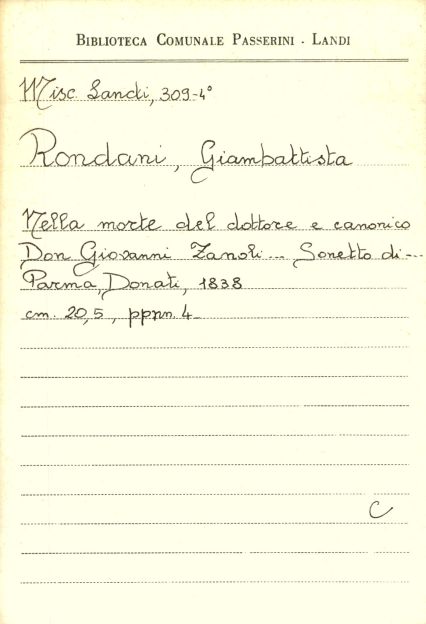 BIBLIOTECA COMUNALE PASSERINI - LANDI
Misc. Landi, 309-4°
Rondani, Giambattista
Nella morte del dottore e canonico
Don Giovanni Zanoli... Sonetto di...
Parma, Donati, 1838
cm. 20,5, ppnn. 4_
C